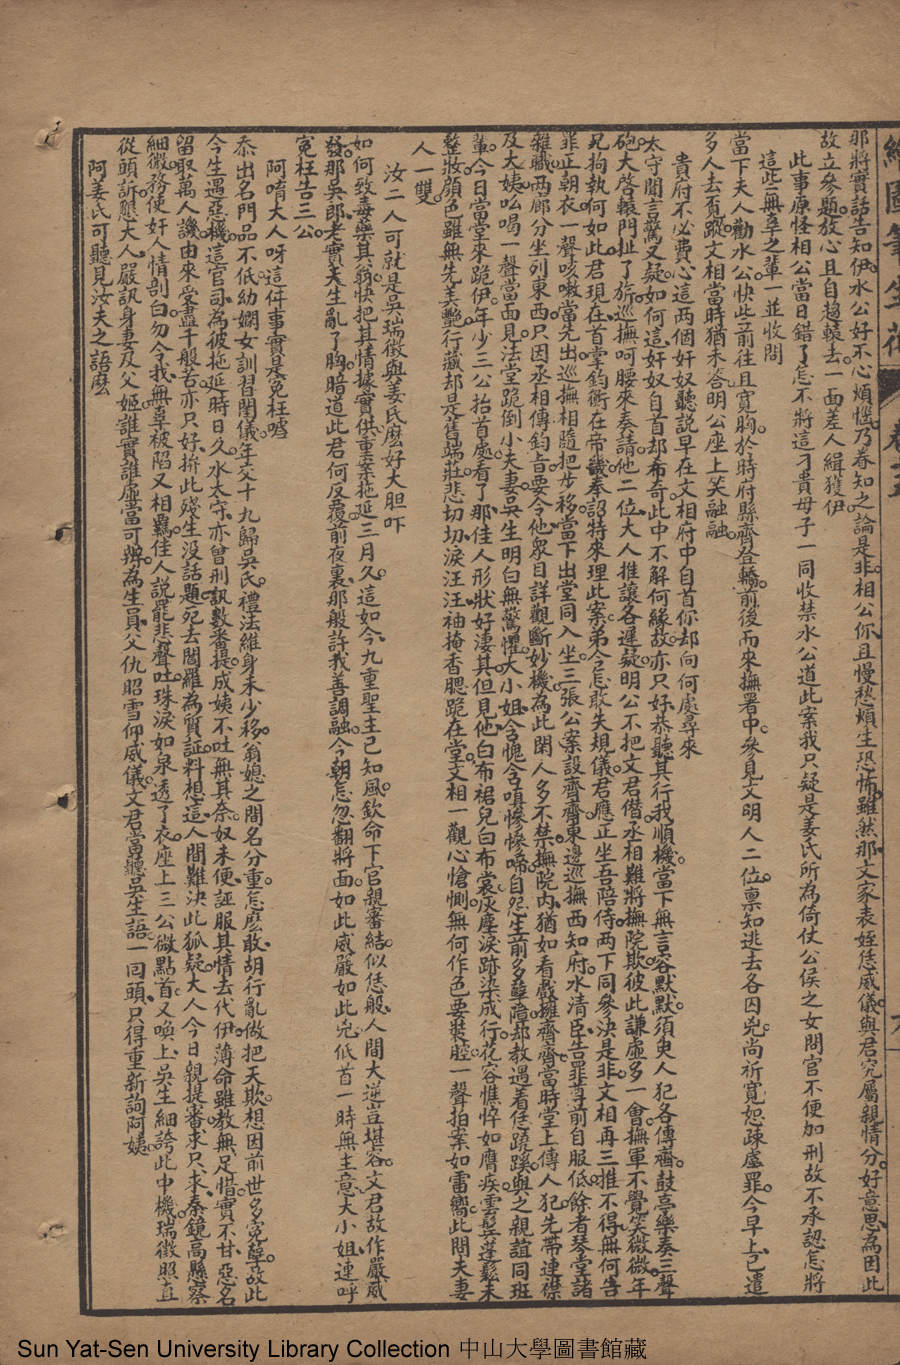 繪圖筆生花 卷十五
那將實話告知伊水公好不心煩惱乃眷知之論是非相公你且慢愁煩生恐怖雖然那文家表姪恁威儀與君究屬親情分好意思為因此
故立參題放心且自趨轅去一面差人緝獲伊
此事原怪相公當日錯了怎不將這刁貴母子一同收禁水公道此案我只疑是姜氏所為倚仗公侯之女問官不便加刑故不承認怎將
這些無辜之輩一並收問
當下夫人勸水公快此前往且寬胸於時府縣齊登轎前後而來撫署中參見文明人二位稟知逃去各囚兇尚祈寬恕疎虞罪今早上已遣
多人去覓蹤文相當時猶未答明公座上笑融融
貴府不必費心這兩個奸奴聽說早在文相府中自首你却向何處尋來
太守聞言驚又疑如何這奸奴自首却希奇此中不解何緣故亦只好恭聽其行我順機當下無言容默默須臾人犯各傳齊鼓亭樂奏三聲
砲大啓轅門扯了旂巡撫呵腰來奏請他二位大人推讓各遲疑明公不把文君僭丞相難將撫院欺彼此謙虛多一會撫軍不覺笑微微年
兄拘執何如此君現在首掌鈞衡在帝畿奉詔特來理此案弟今怎敢失規儀君應正坐吾陪侍兩下同參決是非文相再三推不得無何告
罪正朝衣一聲咳嗽當先出巡撫相隨把步移當下出堂同入坐三張公案設齊齊東邊巡撫西知府水清臣告罪尊前自服低餘者琴堂諸
雜職兩廊分坐列東西只因丞相傳鈞旨要令他衆目詳觀斷妙機為此閑人多不禁撫院內猶如看戲擁齊齊當時堂上傳人犯先帶連襟
及大姨吆喝一聲當面見法堂跪倒小夫妻吳生明白無驚懼大小姐含愧含嗔慘慘啼自怨生前多孽障却教遇着恁蹺蹊與之親誼同班
輩今日當堂來跪伊年少三公抬首處看了那佳人形狀好淒其但見他白布裙兒白布裳灰塵淚跡染成行花容憔悴如膺疾雲髩蓬鬆未
整妝顏色雖無先美艷行藏却是舊端莊悲切切淚汪汪袖掩香腮跪在堂文相一觀心愴惻無何作色要裝腔一聲拍案如雷嚮此問夫妻
人一雙
汝二人可就是吳瑞徵與姜氏麽好大胆吓
如何致毒藥其翁快把其情據實供重案拖延三月久這如今九重聖主已知風欽命下官親審結似恁般人間大逆豈堪容文君故作嚴威
發那吳郎老實夫生亂了胸暗道此君何反覆前夜裏那般許我善調融今朝怎忽翻將面如此威嚴如此兇低首一時無主意大小姐連呼
冤枉告三公
阿唷大人呀這件事實是冤枉嘘
忝出名門品不低幼嫻女訓習閨儀年交十九歸吳氏禮法維身未少移翁媳之間名分重怎麽敢胡行亂做把天欺想因前世多冤孽故此
今生遇惡機這官司為彼拖延時日久水太守亦曾刑訊數番提成姨不吐無其奈奴未便誣服其情去代伊薄命雖教無足惜實不甘惡名
留取萬人譏由來受盡千般苦亦只好拚此殘生没話題死去閻羅為質証料想這人間難決此狐疑大人今日親提審求只求秦鏡高縣察
細微務使奸人情剖白勿令我無辜被陷又相羈佳人說罷悲聲吐珠淚如泉透了衣座上三公微點首又喚上吳生細誇此中機瑞徵照直
從頭訴懇大人嚴訊身妻及父姬誰實誰虛當可辨為生員父仇昭雪仰威儀文君當聽吳生語一囘頭只得重新詢阿姨
阿姜氏可聽見汝夫之語麽
Sun Yat-Sen University Library Collection 中山大學圖書館藏